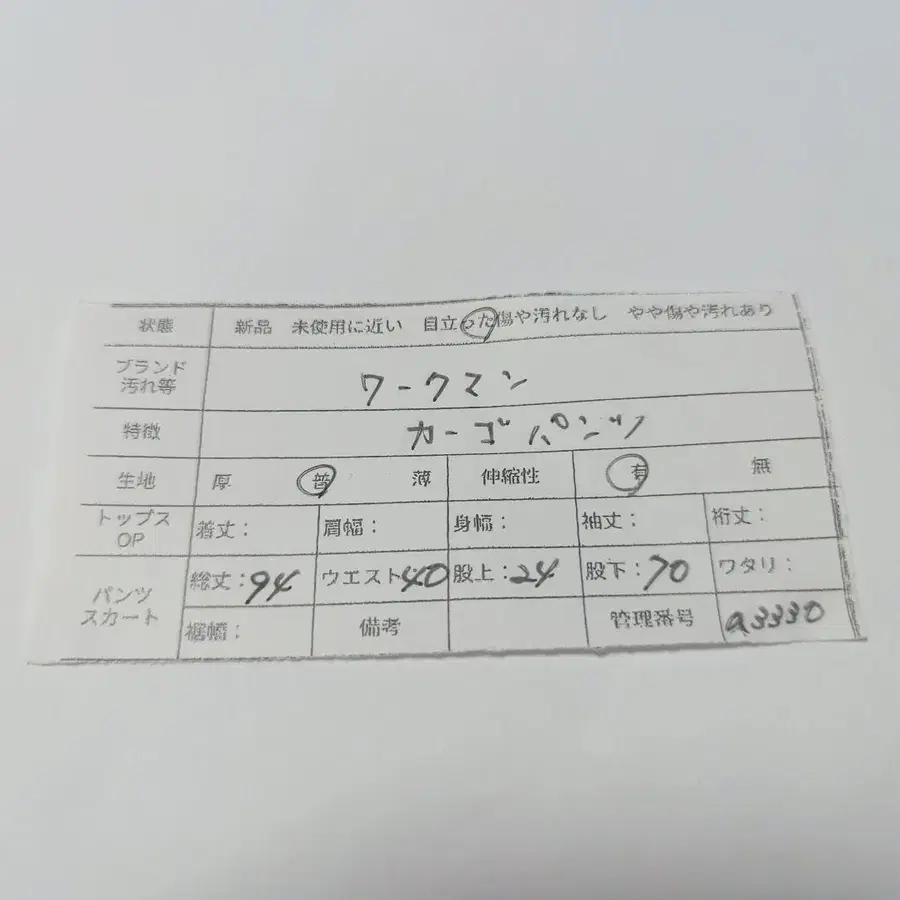 状態 新品 未使用に近い 目立った傷や汚れなし やや傷や汚れあり
ブランド
汚れ等
ワークマン
特徴 カーゴパンツ
生地 厚 普 薄 伸縮性 有 無
トップス
OP
着丈： 肩幅： 身幅： 袖丈： 裄丈：
パンツ
スカート
総丈：94 ウエスト：40 股上：24 股下：70 ワタリ：
裾幅： 備考 管理番号 a3330